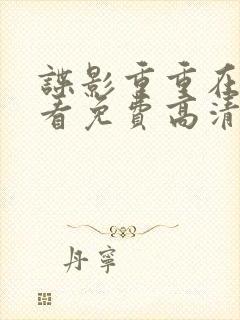 諜影重重在
看免費高清
丹寧